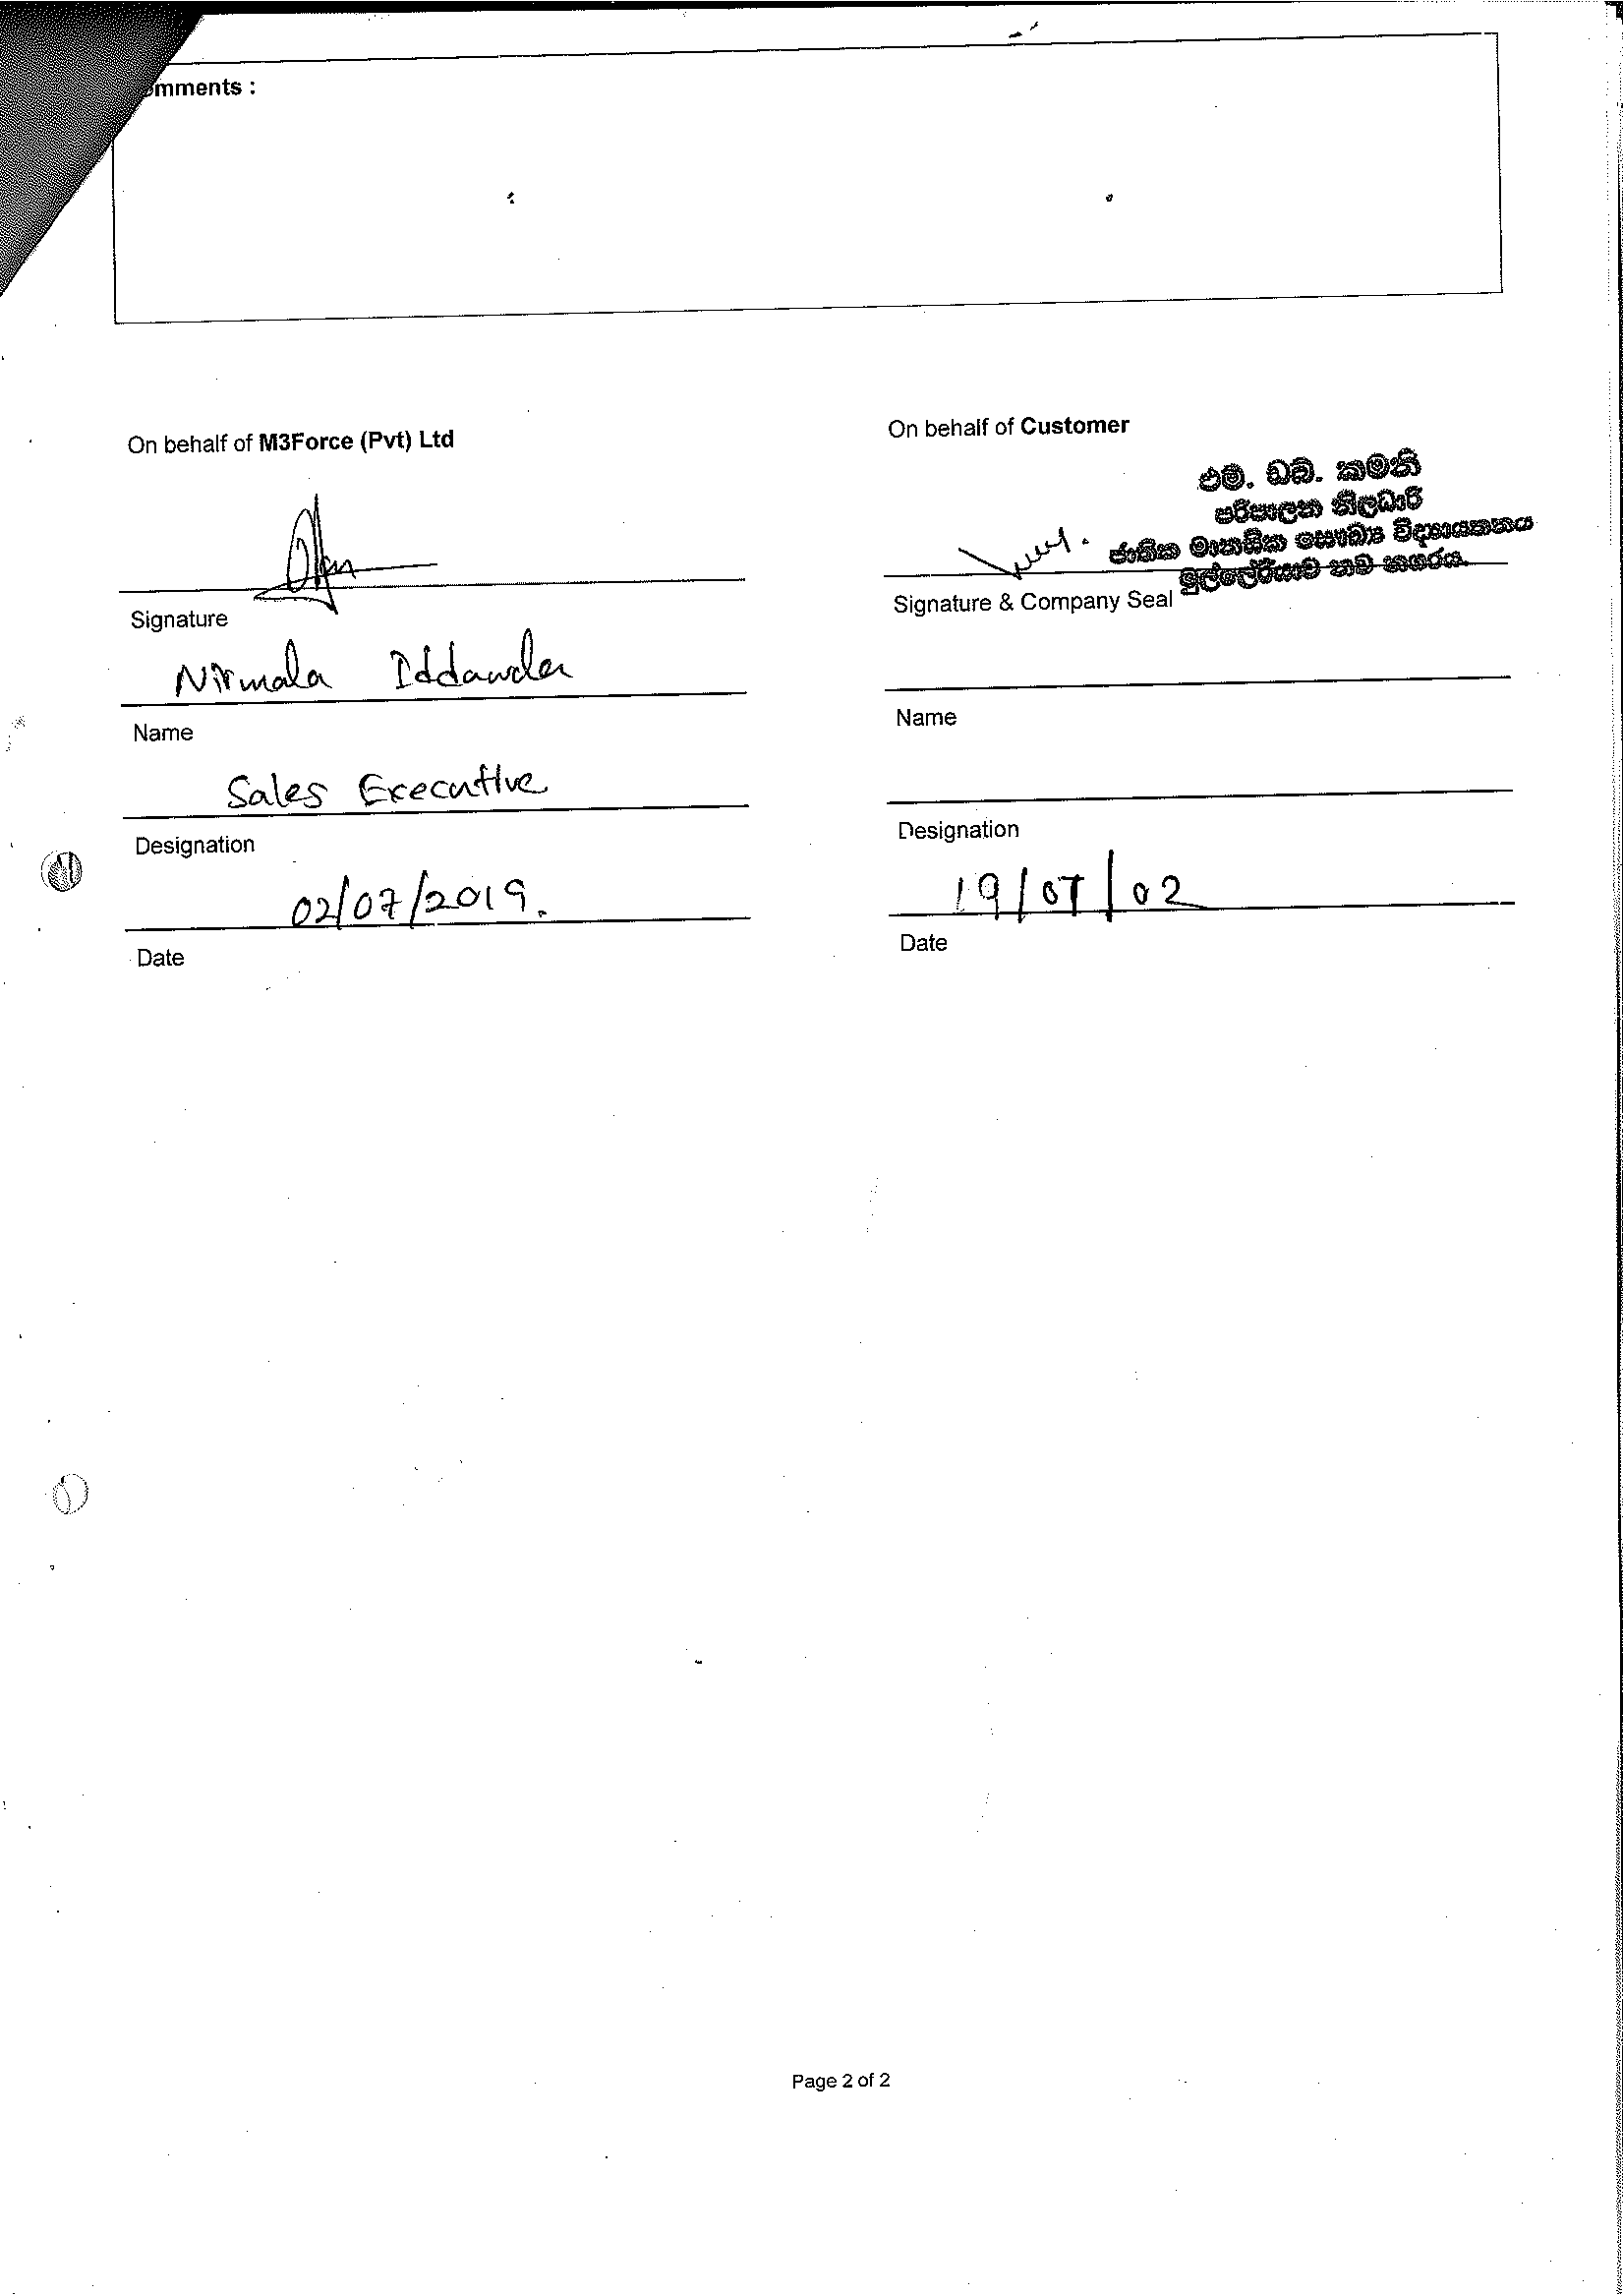 omments :
On behalf of M3Force (Pvt) Ltd
Signature
Nirmala Iddawela
Name
Sales Executive
Designation
02/07/2019.
Date
On behalf of Customer
එම්. ඩබ්. කමනි
පරිපාලන නිලධාරි
ජාතික මානසික සෞඛ්‍ය විද්‍යායතනය
මුල්ලේරියාව නව නගරය.
Signature & Company Seal
Name
Designation
19/07/02
Date
Page 2 of 2